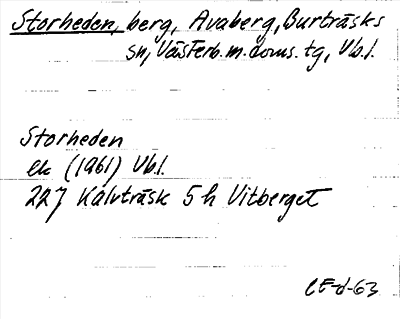 Storheden, berg, Avaberg, Burträsks
sn, Västerb. m. doms. tg, Vb.l.
Storheden
ek (1961) Vb.l.
22J Kalvträsk 5 h Vitberget
CE-d-63